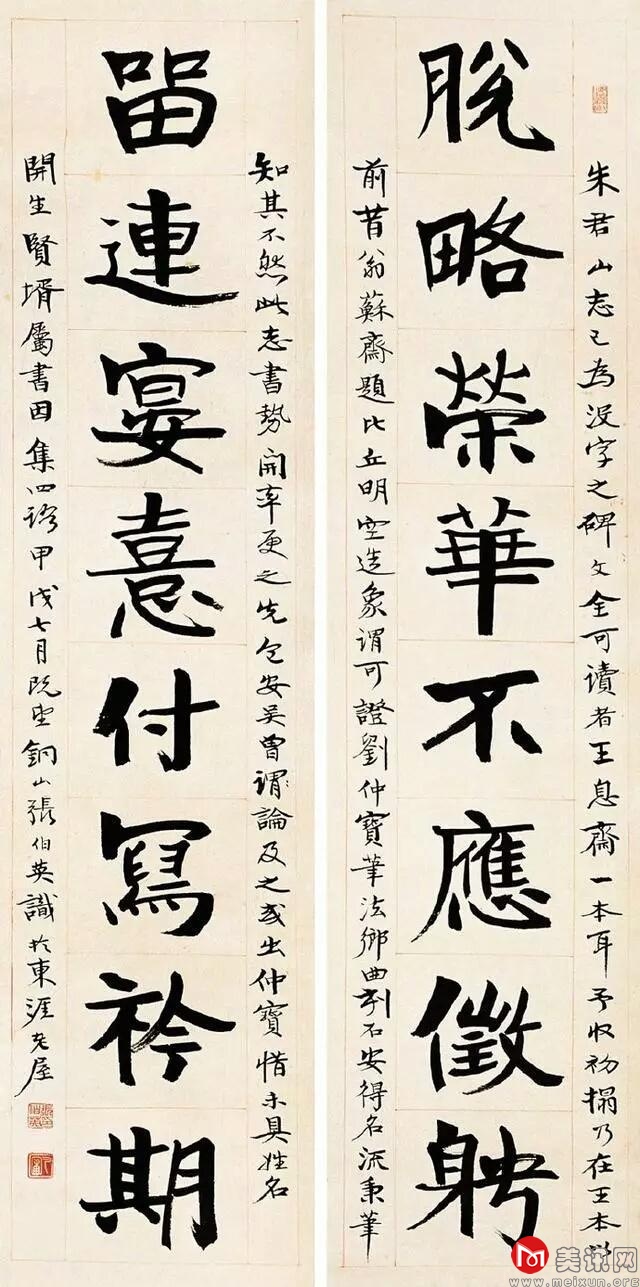 朱君山志已為没字之碑文全可讀者王息齋一本耳予收初搨乃在王本以
脫略榮華不應徵聘
前昔翁蘇齋題比丘明空造象謂可證劉仲寶筆法鄉曲刻石安得名流秉筆
知其不然此志書勢開率更之先包安吳曾謂論及之或出仲寶惜未具姓名
留連宴憙付寫衿期
開生賢壻屬書因集四語甲戌七月既望銅山張伯英識於東涯老屋
美讯网
www.meixun.org